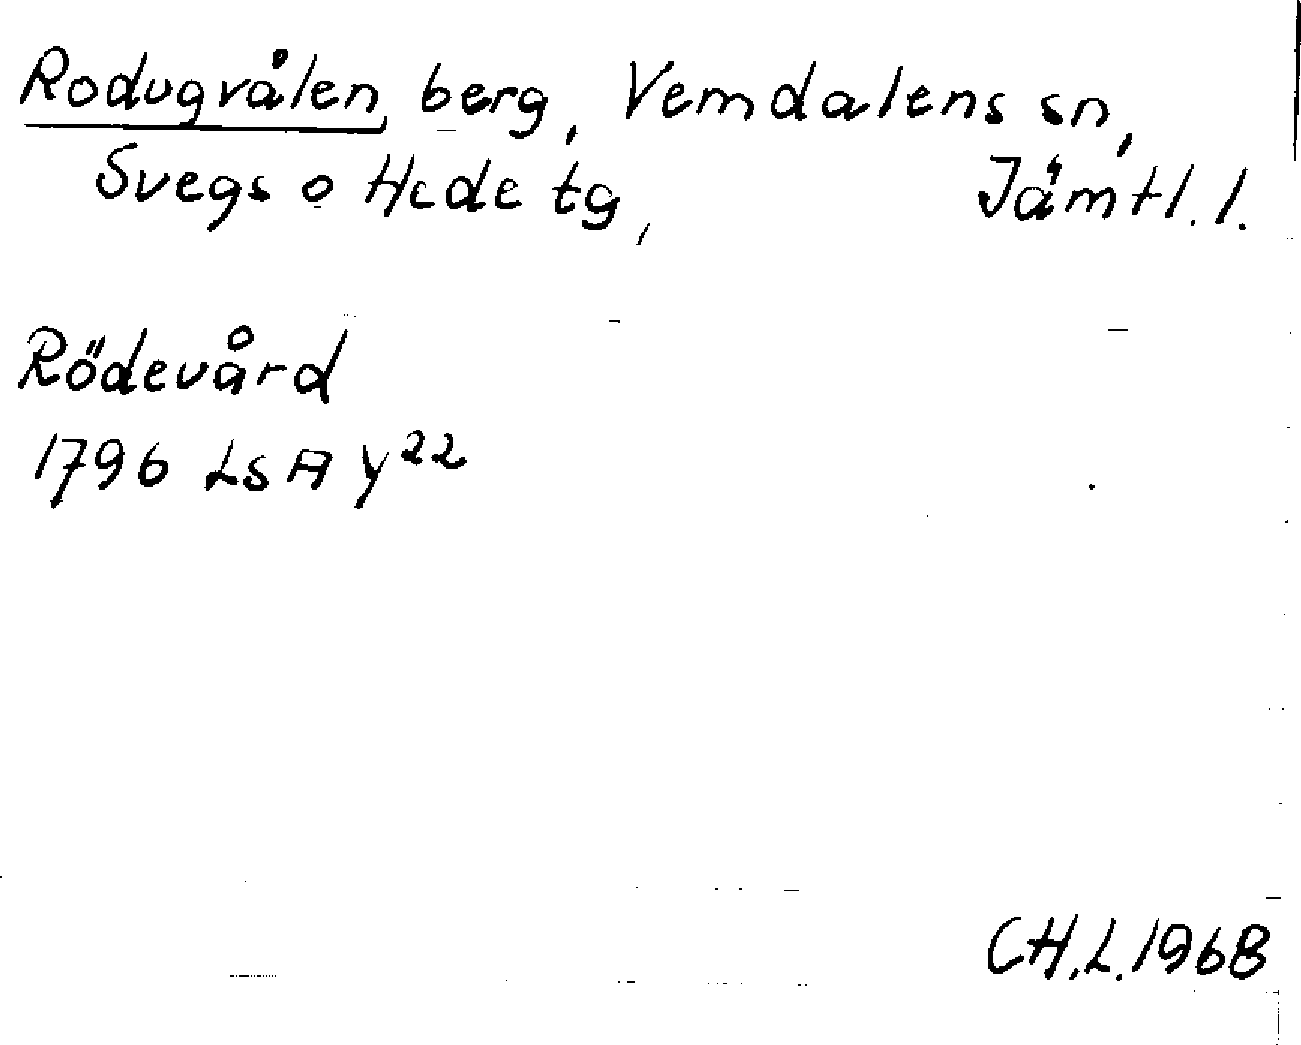 Rodugvålen, berg, Vemdalens sn,
Svegs o Hede tg, Jämtl. l.
Rödevård
1796 LSA Y22
CH.L. 1968